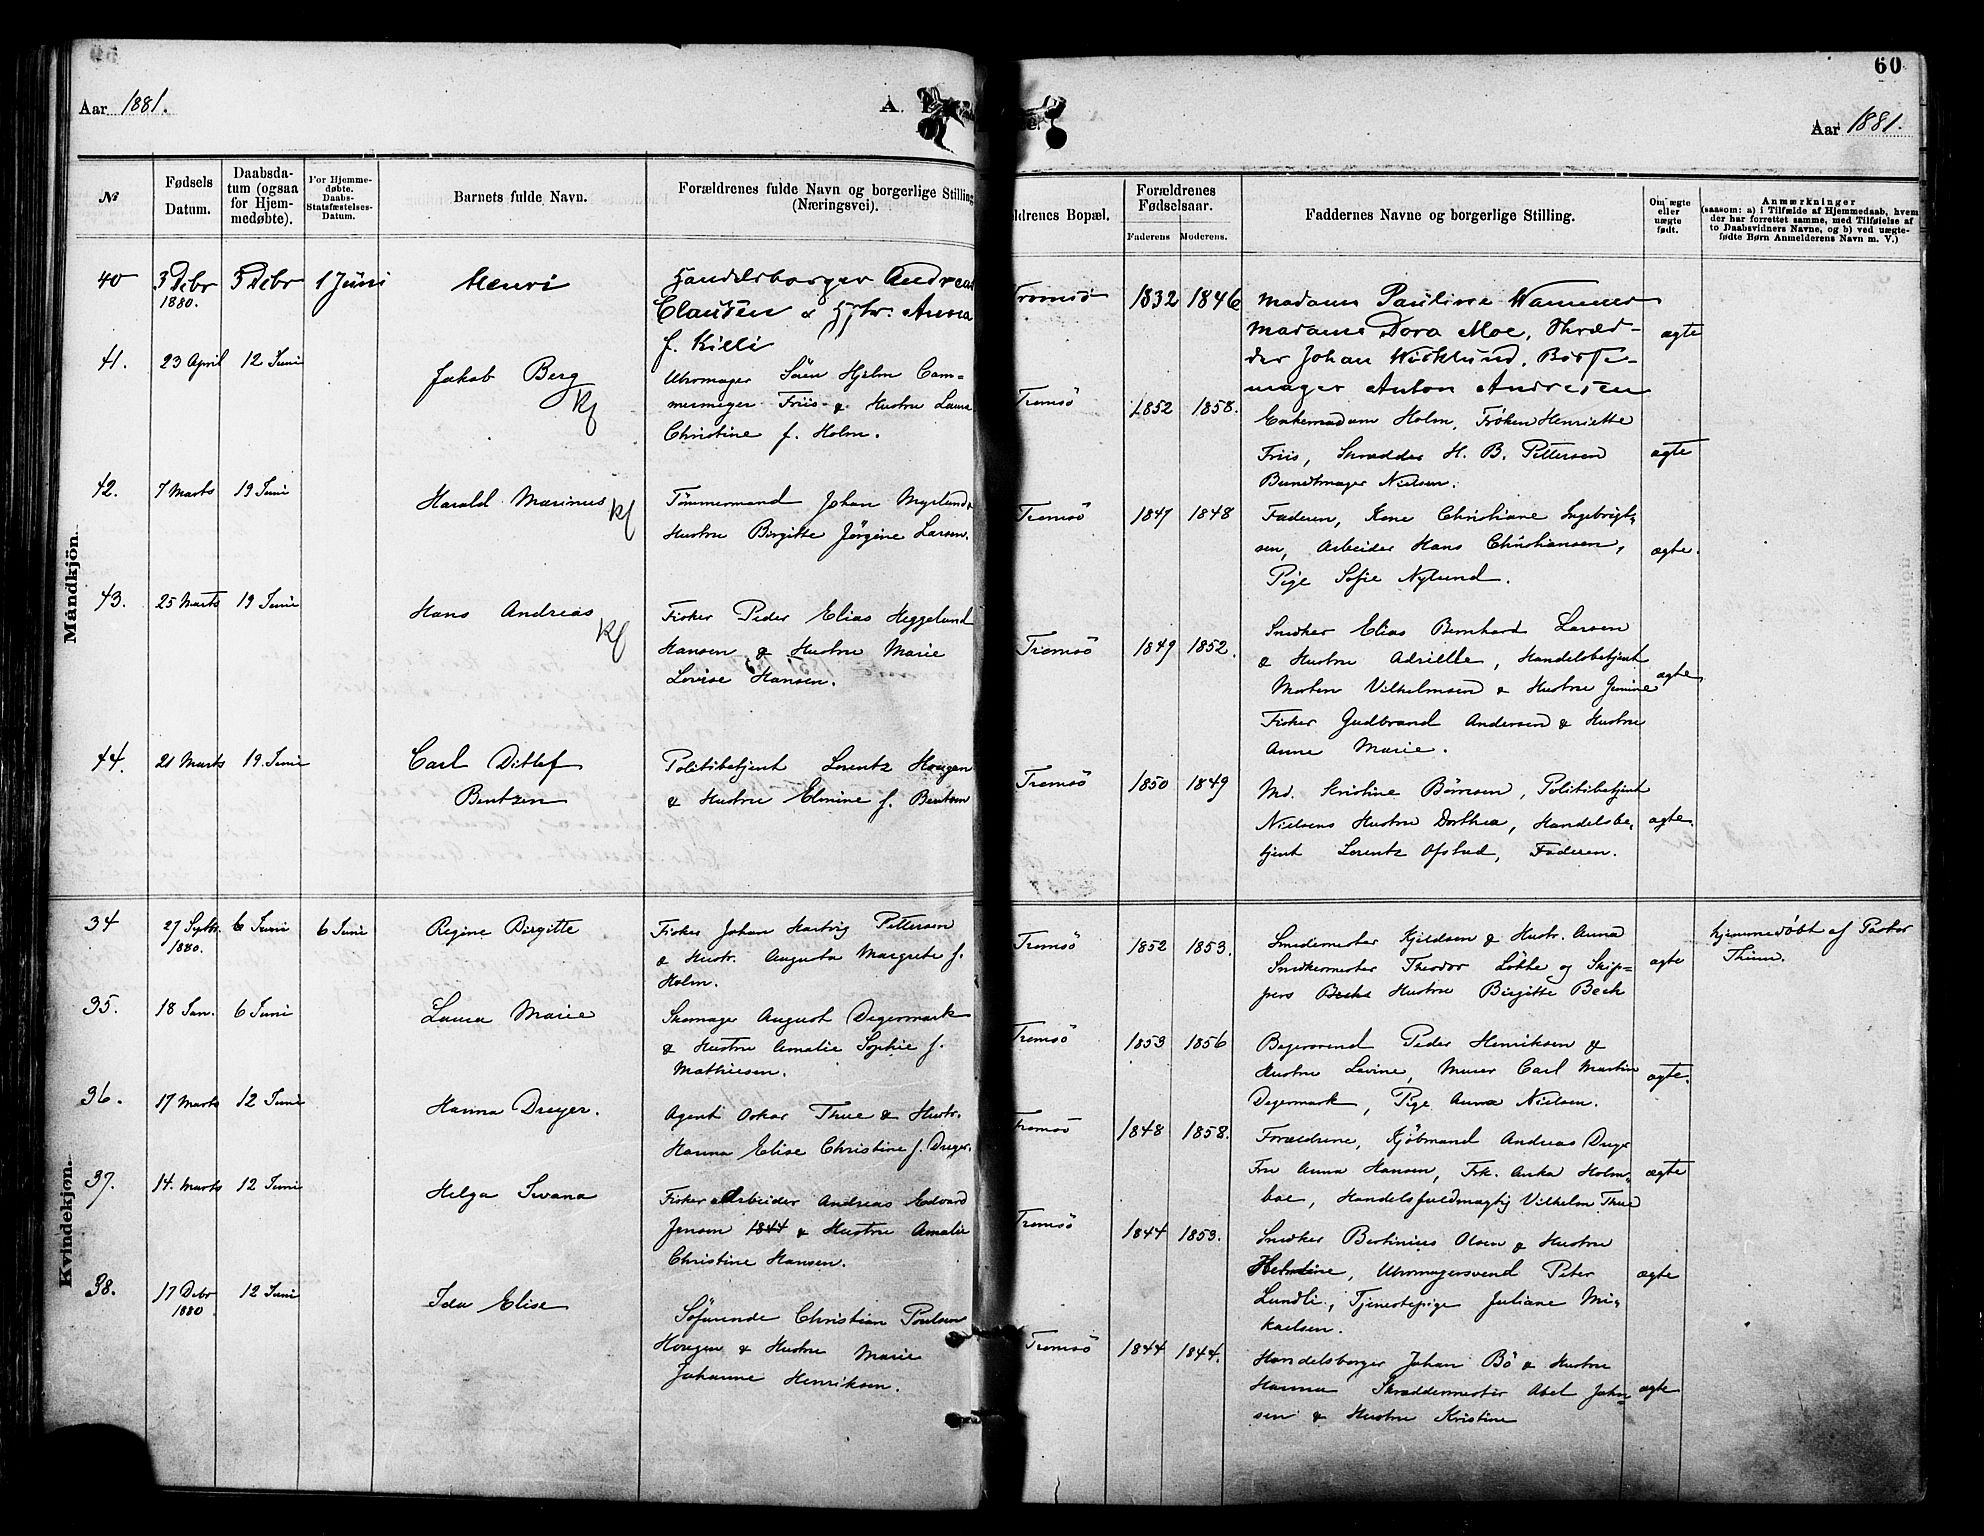 60
Aar 1881.
A.
Aar 1881.
№
Fødsels Datum.
Daabsdatum (ogsaa for Hjemmedøbte).
For Hjemmedøbte. Daabs-Statsfæstelses-Datum.
Barnets fulde Navn.
Forældrenes fulde Navn og borgerlige Stilling (Næringsvei).
ldrenes Bopæl.
Forældrenes Fødselsaar.
Faderens.
Moderens.
Faddernes Navne og borgerlige Stilling.
Om ægte eller uægte født.
Anmærkninger
(saasom: a) i Tilfælde af Hjemmedaab, hvem
der har forrettet samme, med Tilføielse af
to Daabsvidners Navne, og b) ved uægte-
fødte Børn Anmelderens Navn m. V.)
Mandkjön.
40 3 Debr 1880. 5 Debr 1 Juni Henri
Handelsborger Andreas
Clausen & Hstr. Anna
f. Killi
Tromsö 1832 1846
Madam Pauline Wammer
Madame Dora Moe, Skræd-
der Johan Wicklund, Börste-
mager Anton Andresen
ægte
41. 23 April 12 Juni Jakob Berg Kf
Uhrmager Sören Hjelm Cam-
mermeyer Friis & Hustru Laura
Christine f. Holm.
Tromsö 1852 1858.
Enkemadam Holm, Fröken Henriette
Friis, Skrædder H. B. Pettersen
Bundtmager Nielsen.
ægte
42. 7 Marts 19 Juni Harald Marinus Kf
Tömmermand Johan Myrlund &
Hustru Birgitte Jörgine Larsen.
Tromsö 1847 1848
Faderen, Kone Christiane Ingebrigt-
sen, Arbeider Hans Christiansen,
Pige Sofie Nylund.
ægte.
43. 25 Marts 19 Juni Hans Andreas Kf
Fisker Peder Elias Heggelund
Hansen & Hustru Marie
Lovise Hansen.
Tromsö 1849 1852.
Snedker Elias Bernhard Larsen
& Hustru Adrielle, Handelsbetjent
Morten Vilhelmsen & Hustru Jemine
Fisker Gudbrand Andersen & Hustru
Anne Marie.
ægte
44. 21 Marts 19 Juni Carl Ditlef
Bentzen
Politibetjent Lorentz Hougen
& Hustru Elmine f. Bentzen
Tromsö 1850 1849
Md. Kristine Børresen, Politibetjent
Nielsens Hustru Dorthea, Handelsbe-
tjent Lorentz Ofstad, Faderen.
ægte.
Kvindekjön.
34 27 Septbr. 1880. 6 Juni 6 Juni Regine Birgitte
Fisker Johan Hartvig Pettersen
& Hustr. Augusta Margrete f.
Holm.
Tromsö 1852 1853.
Smedemester Kjeldsen & Hustr. Anna
Snedkermester Theodor Løkke og Skip-
pers Becks Hustru Birgitte Beck
ægte
hjemmedöbt af Pastor
35. 18 Jan. 6 Juni Laura Marie
Skomager August Degermark
& Hustru Amalie Sophie f.
Mathiesen.
Tromsö 1853 1856
Bagersvend Peder Henriksen &
Hustru Lovine, Murer Carl Martin
Degermark, Pige Anna Nielsen.
ægte.
36. 17 Marts 12 Juni Hanna Dreyer.
Agent Oskar Thue & Hustr.
Hanna Elise Christine f. Dreyer.
Tromsö 1848 1858.
Forældrene, Kjöbmand Andreas Dreyer
Fru Anna Hansen, Frk. Anka Holm-
boe, Handelsfuldmægtig Vilhelm Thue
ægte
37. 14. Marts 12 Juni Helga Svana
Fisker Arbeider Andreas Edvard
Jensen 1844 & Hustru Amalie
Christine Hansen.
Tromsö 1844 1853.
Snedker Bertinius Olsen & Hustru
Helmine, Uhrmagersvend Peter
Lundli, Tjenestepige Juliane Mi-
kaelsen.
ægte
38. 17 Debr 1880. 12 Juni Ida Elise
Söfarende Christian Poulsen
Hougen & Hustru Marie
Johanne Henriksen.
Tromsö 1844 1844.
Handelsborger Johan Bö & Hustru
Hanna Skræddermester Abel John-
sen & Hustru Kristine
ægte